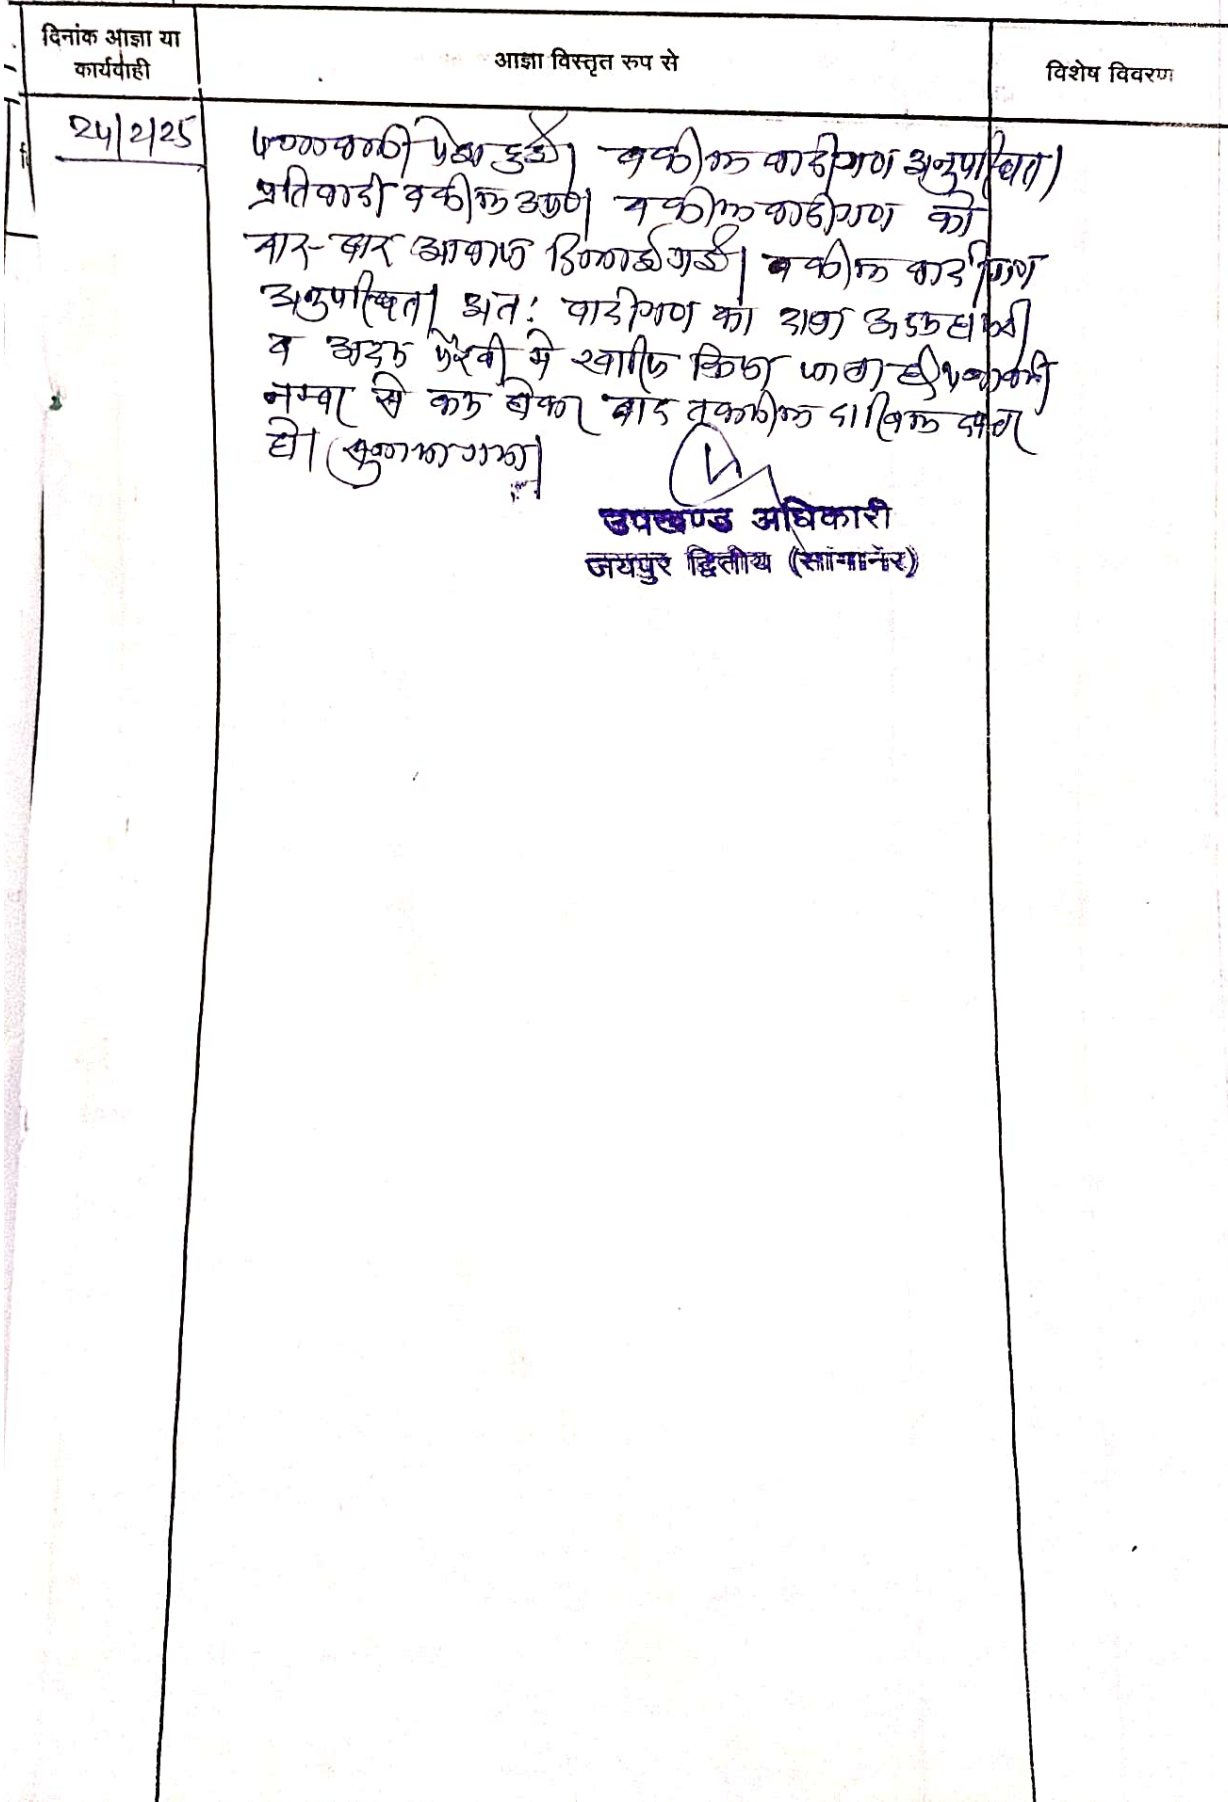 दिनांक आज्ञा या
कार्यवाही
आज्ञा विस्तृत रुप से
विशेष विवरण
24/2/25
पत्रावली पेश हुई। वकील वादीगण अनुपस्थित।
प्रतिवादी वकील उप०। वकील वादीगण को
बार-बार आवाज दिलाई गई। वकील वादीगण
अनुपस्थित। अतः वादीगण का दावा अदम हाजरी
व अदम पैरवी मे खारिज किया जाता है। पत्रावली
नम्बर से कम होकर बाद तकमील दाखिल दफ्तर
हो। सुनाया गया।
उपखण्ड अधिकारी
जयपुर द्वितीय (सांगानेर)